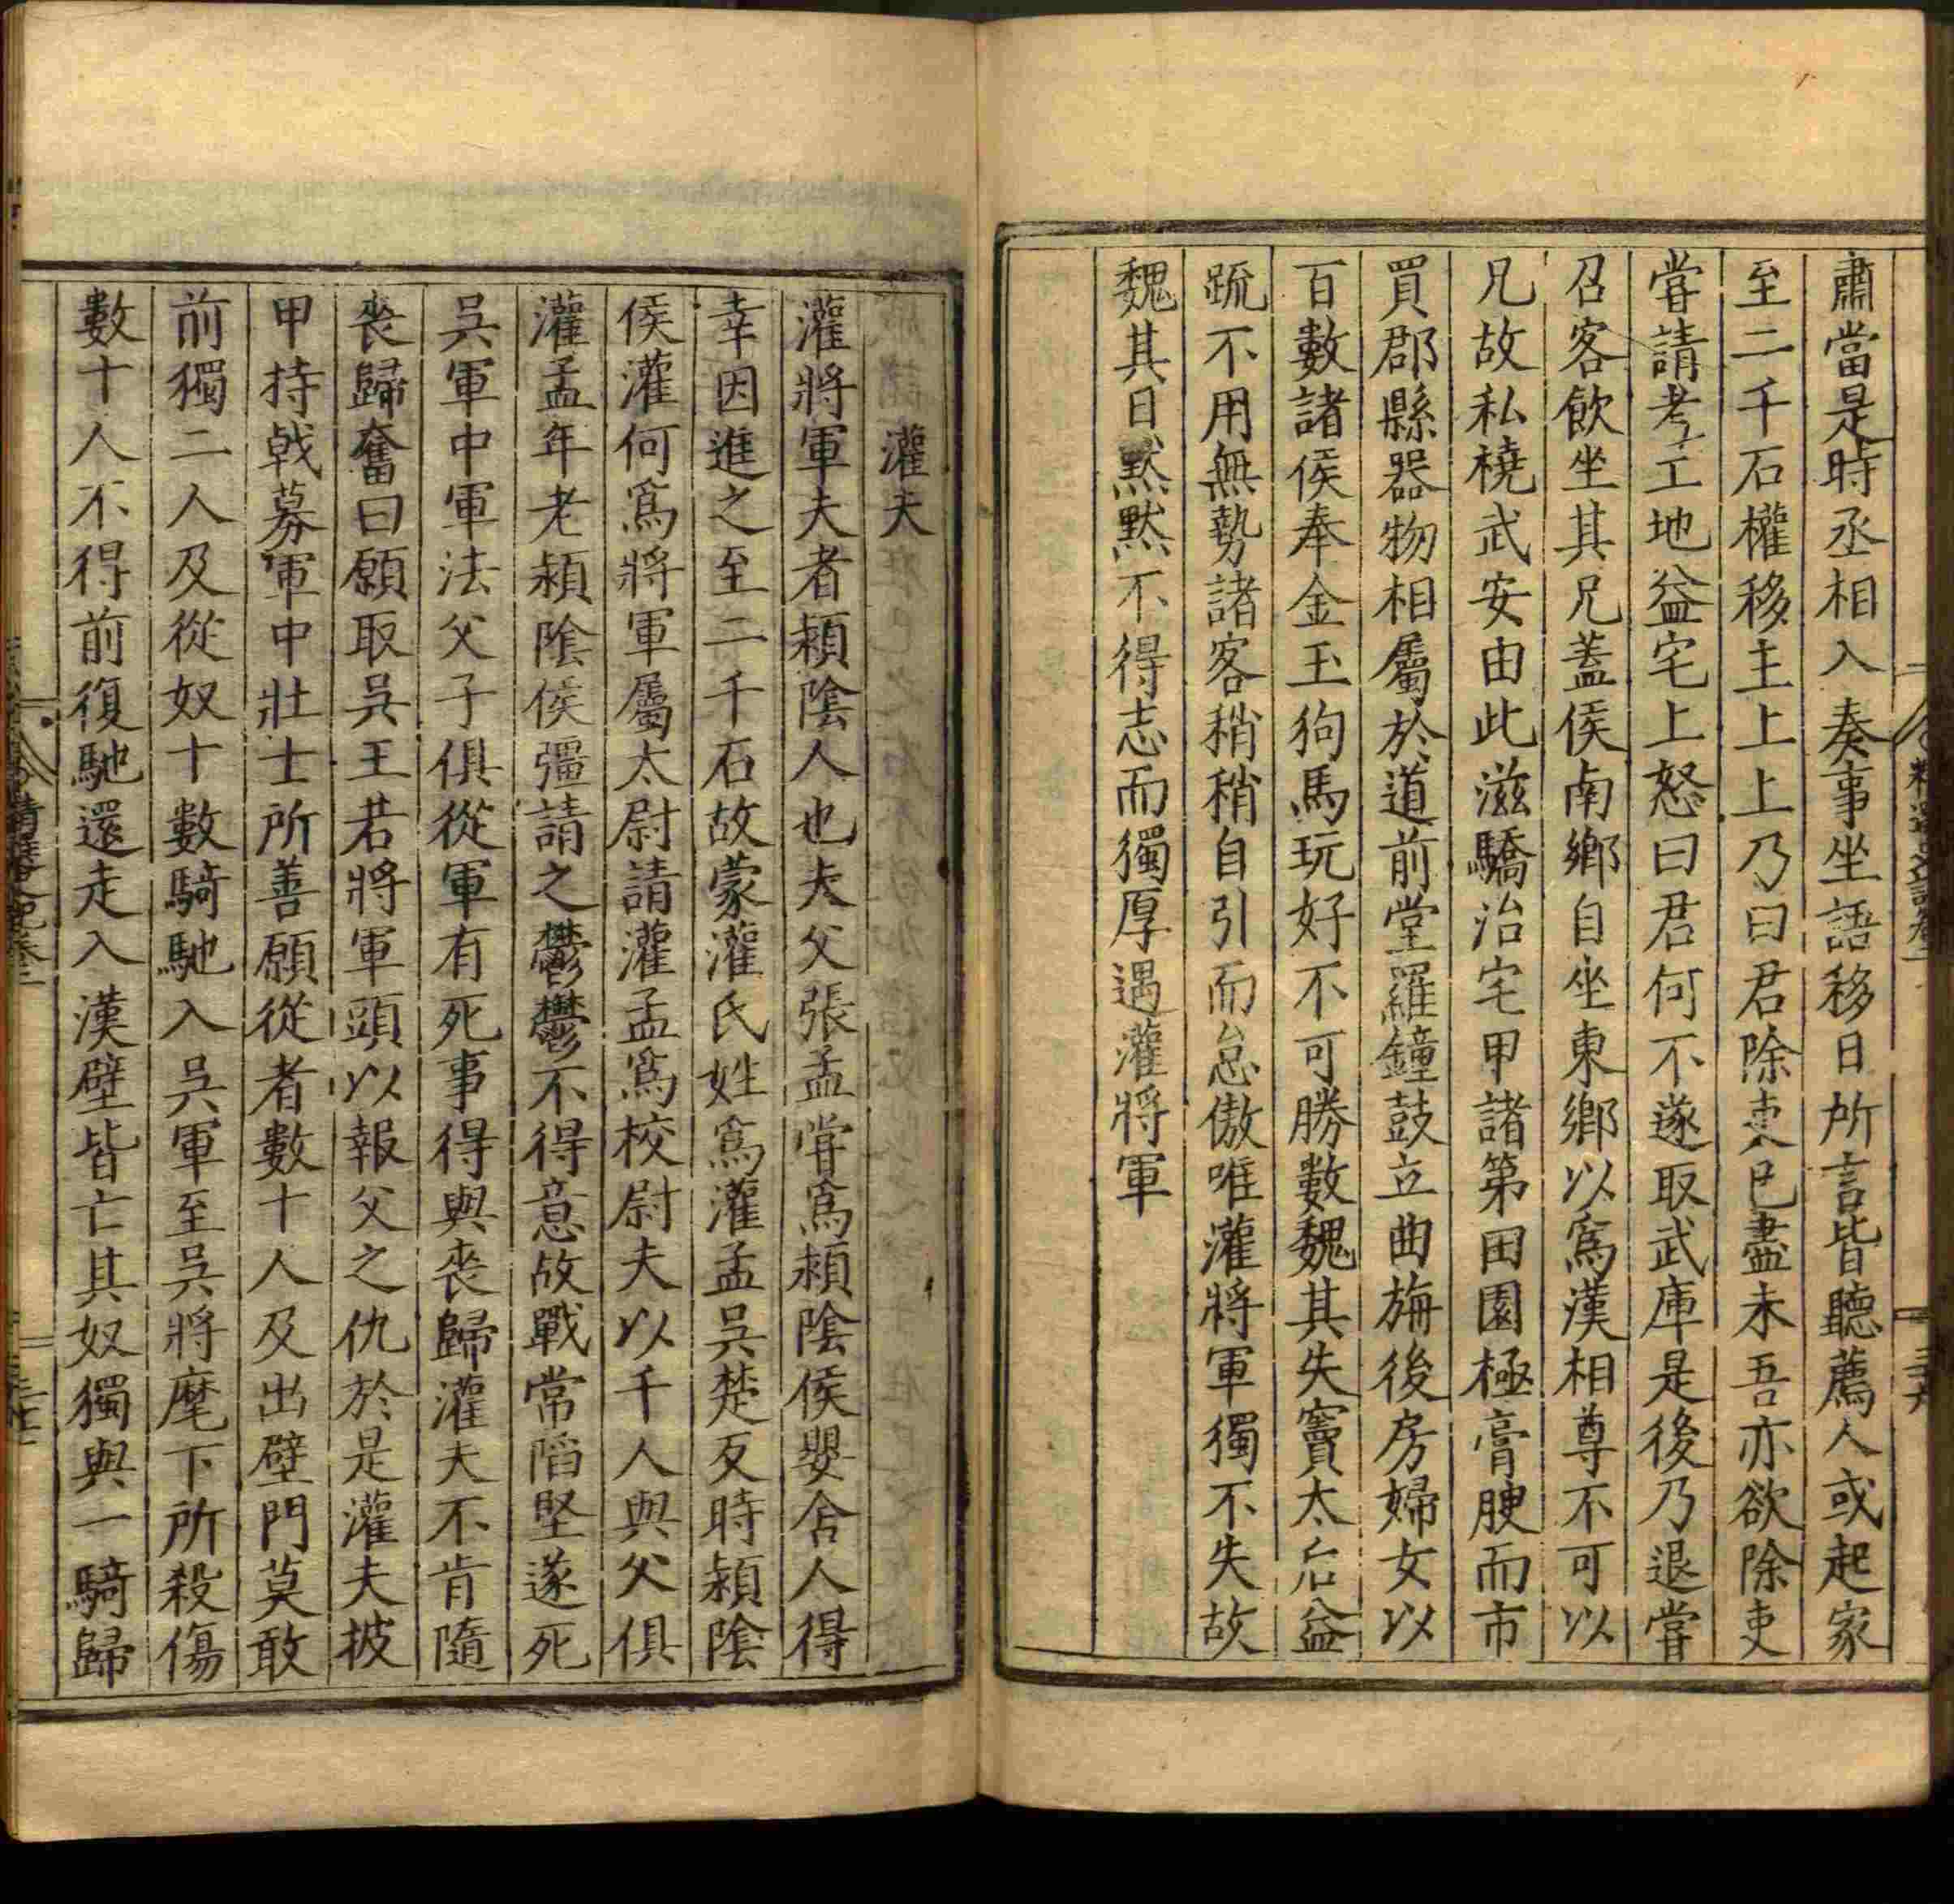 肅當是時丞相入奏事坐語移日所言皆聽薦人或起家
至二千石權移主上上乃曰君除吏已盡未吾亦欲除吏
嘗請考工地益宅上怒曰君何不遂取武庫是後乃退嘗
召客飲坐其兄蓋侯南鄉自坐東鄉以爲漢相尊不可以
兄故私橈武安由此滋驕治宅甲諸第田園極膏腴而市
買郡縣器物相屬於道前堂羅鐘鼓立曲旃後房婦女以
百數諸侯奉金玉狗馬玩好不可勝數魏其失竇太后益
疏不用無勢諸客稍稍自引而怠傲唯灌將軍獨不失故
魏其日默默不得志而獨厚遇灌將軍
灌夫
灌將軍夫者潁陰人也夫父張孟嘗爲潁陰侯嬰舍人得
幸因進之至二千石故蒙灌氏姓爲灌孟吳楚反時潁陰
侯灌何爲將軍屬太尉請灌孟爲校尉夫以千人與父俱
灌孟年老潁陰侯彊請之鬱鬱不得意故戰常陷堅遂死
吳軍中軍法父子俱從軍有死事得與喪歸灌夫不肯隨
喪歸奮曰願取吳王若將軍頭以報父之仇於是灌夫披
甲持戟募軍中壯士所善願從者數十人及出壁門莫敢
前獨二人及從奴十數騎馳入吳軍至吳將麾下所殺傷
數十人不得前復馳還走入漢壁皆亡其奴獨與一騎歸